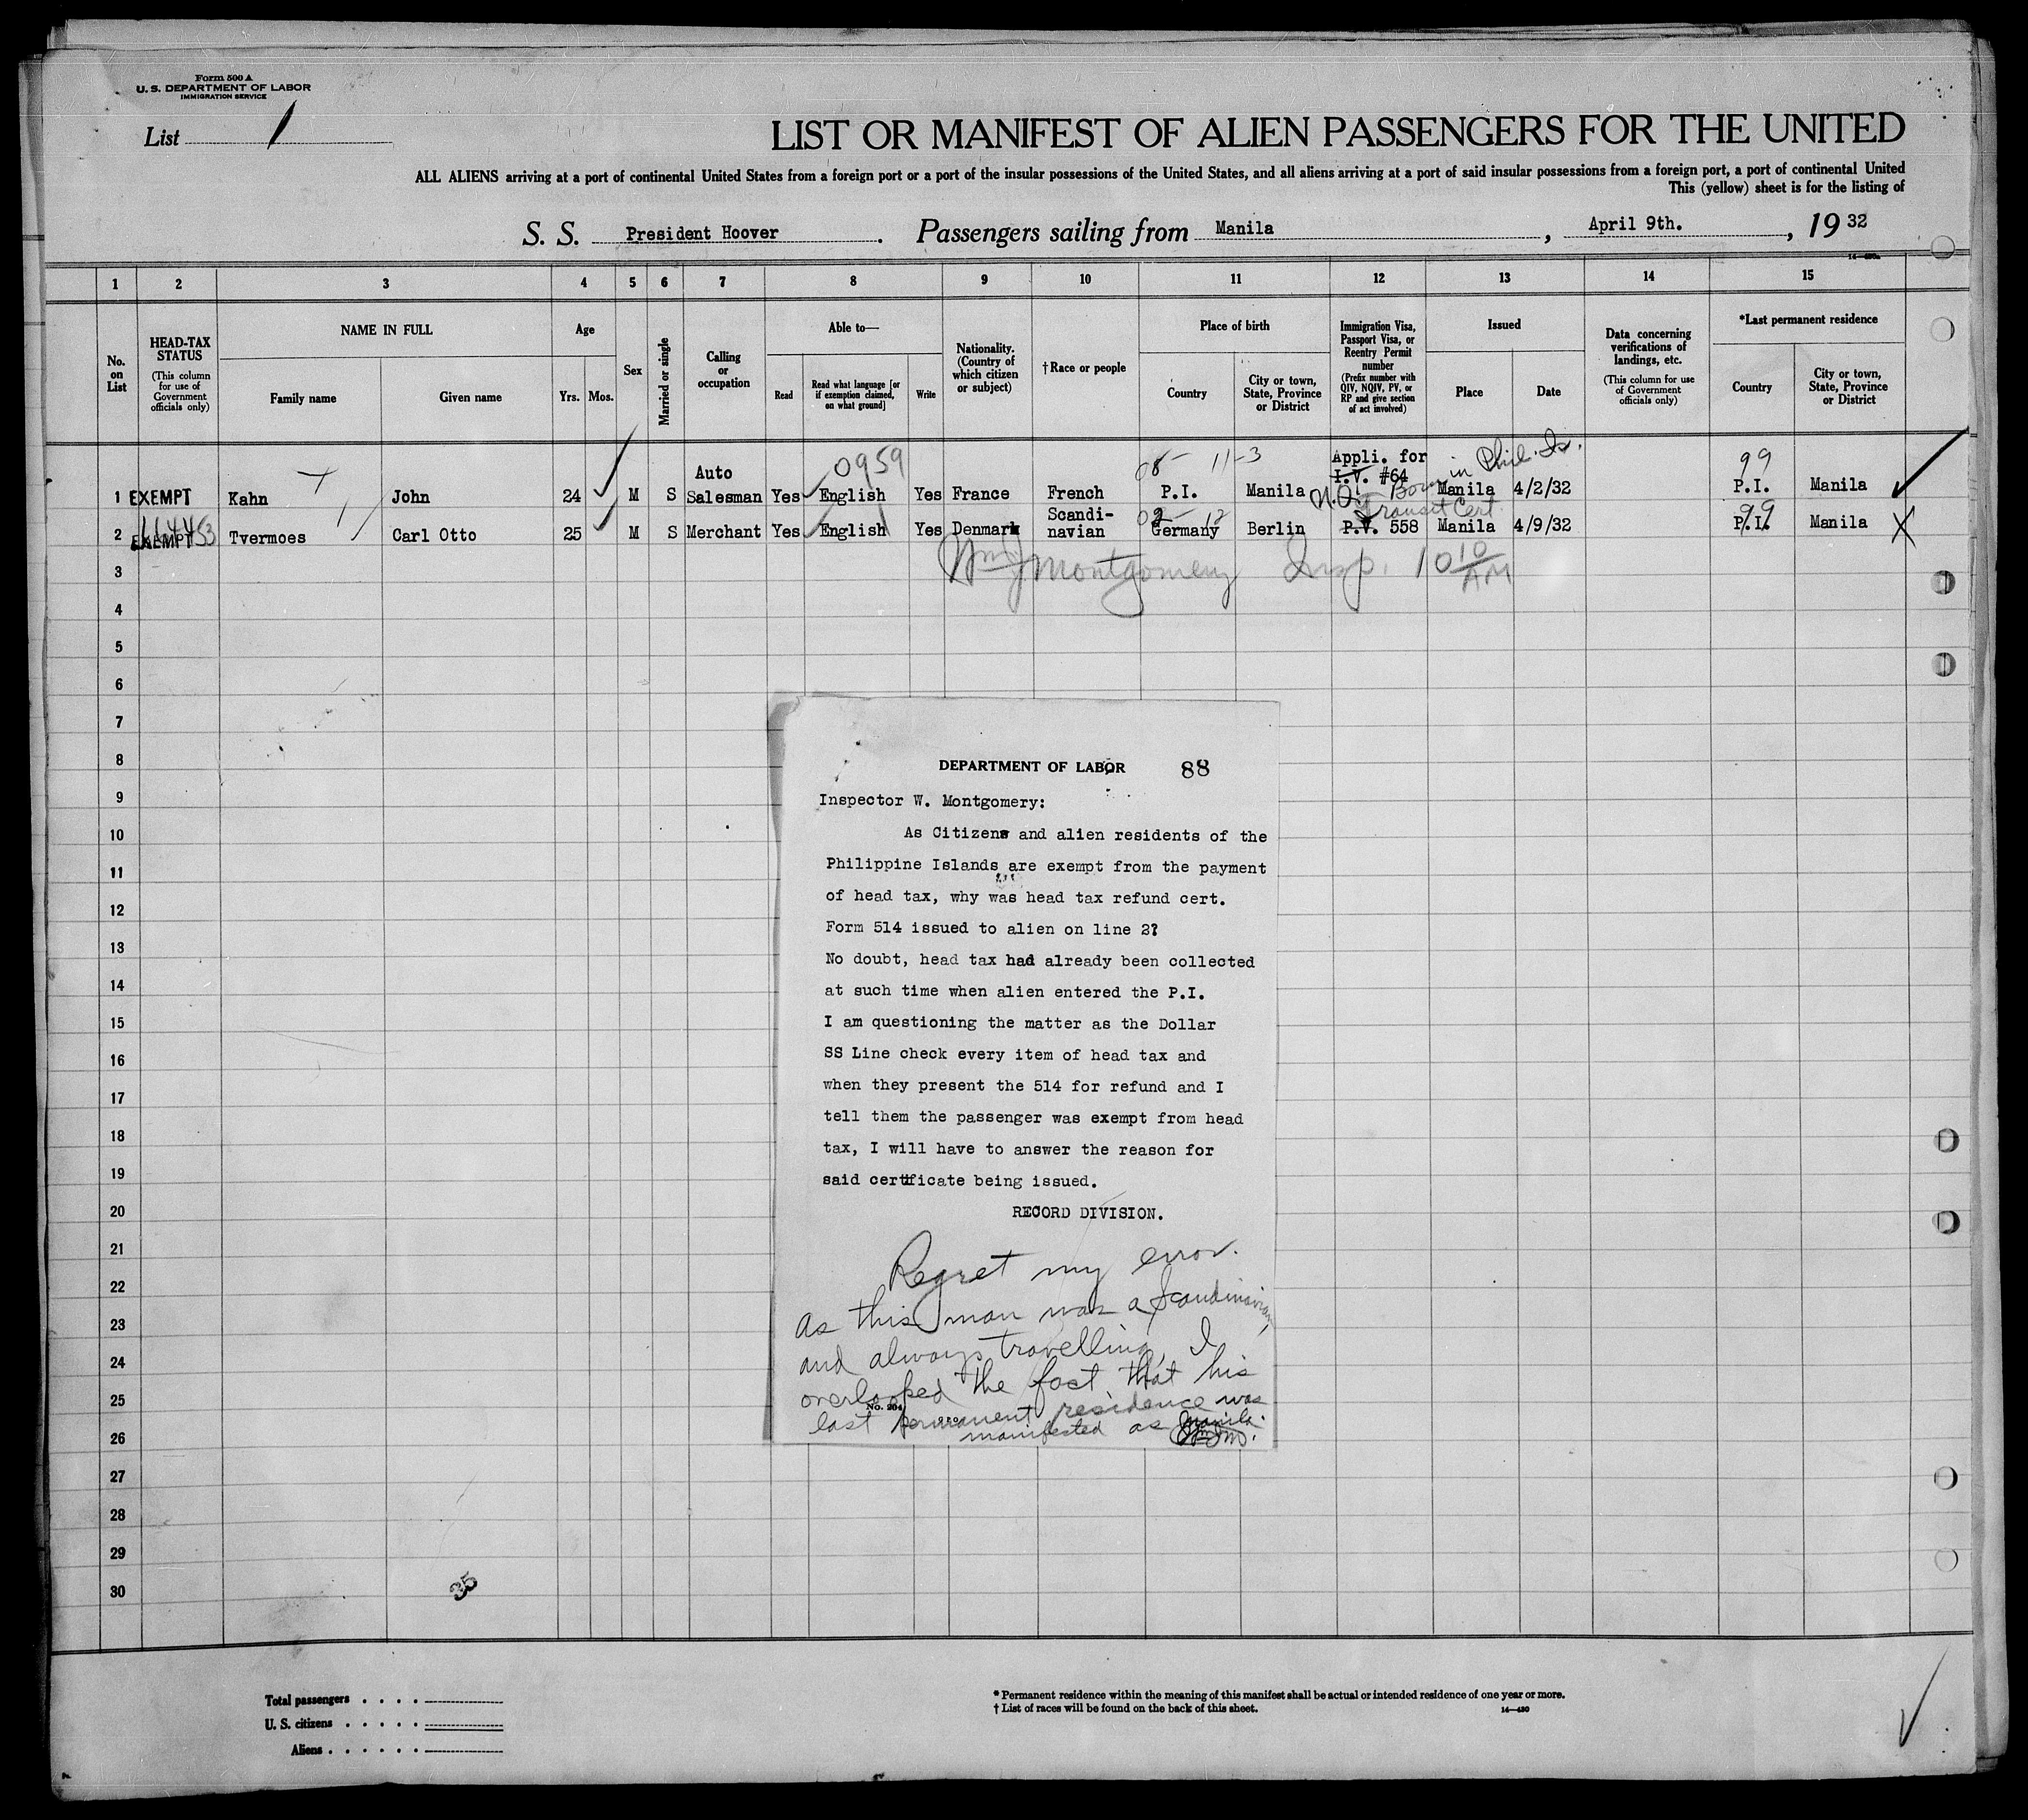 Form 500 A
U. S. DEPARTMENT OF LABOR
IMMIGRATION SERVICE
List 1
LIST OR MANIFEST OF ALIEN PASSENGERS FOR THE UNITED
ALL ALIENS arriving at a port of continental United States from a foreign port or a port of the insular possessions of the United States, and all aliens arriving at a port of said insular possessions from a foreign port, a port of continental United
This (yellow) sheet is for the listing of
S. S. President Hoover. Passengers sailing from Manila, April 9th., 1932
14—430a
1 2 3 4 5 6 7 8 9 10 11 12 13 14 15
No. on List
HEAD-TAX STATUS (This column for use of Government officials only)
NAME IN FULL
Family name
Given name
Age
Yrs. Mos.
Sex
Married or single
Calling or occupation
Able to—
Read
Read what language [or if exemption claimed, on what ground]
Write
Nationality. (Country of which citizen or subject)
† Race or people
Place of birth
Country
City or town, State, Province or District
Immigration Visa, Passport Visa, or Reentry Permit number (Prefix number with QIV, NQIV, PV, or RP and give section of act involved)
Issued
Place
Date
Data concerning verifications of landings, etc. (This column for use of Government officials only)
*Last permanent residence
Country
City or town, State, Province or District
0959 08 11-3 in Phil. Is. 99
Auto Appli. for
I.V. #64
1 EXEMPT Kahn John 24 M S Salesman Yes English Yes France French P.I. Manila N.Q. Born Manila 4/2/32 P.I. Manila
Scandi- 02-12 Transit Cert. 99
2 EXEMPT Tvermoes Carl Otto 25 M S Merchant Yes English Yes Denmark navian Germany Berlin P.V. 558 Manila 4/9/32 P.I. Manila
3 Wm J Montgomery Insp. 10 10/AM
4
5
6
7
8
9
10
11
12
13
14
15
16
17
18
19
20
21
22
23
24
25
26
27
28
29
30
DEPARTMENT OF LABOR 88
Inspector W. Montgomery:
As Citizens and alien residents of the
Philippine Islands are exempt from the payment
of head tax, why was head tax refund cert.
Form 514 issued to alien on line 2?
No doubt, head tax had already been collected
at such time when alien entered the P.I.
I am questioning the matter as the Dollar
SS Line check every item of head tax and
when they present the 514 for refund and I
tell them the passenger was exempt from head
tax, I will have to answer the reason for
said certificate being issued.
RECORD DIVISION.
Regret my error.
as this man was a Scandinavian,
and always travelling, I
overlooked the fact that his
No. 204
last permanent residence was
manifested as Manila.
35
Total passengers
U. S. citizens
Aliens
* Permanent residence within the meaning of this manifest shall be actual or intended residence of one year or more.
† List of races will be found on the back of this sheet.
14—430